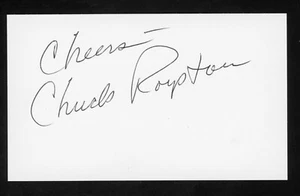 Cheers –
Chuck Royston